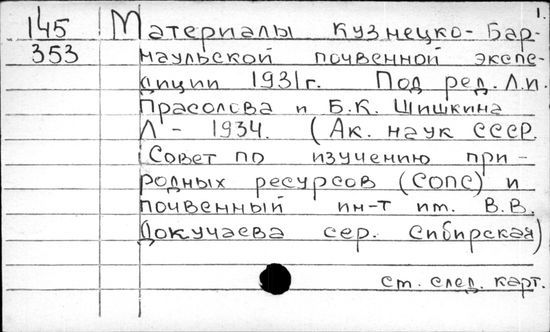 1.
145 Материалы Кузнецко-Бар-
353 наульской почвенной экспе-
диции 1931г. Под ред. Л.И.
Прасолова и Б.К. Шишкина
Л - 1934. (Ак. наук СССР.
Совет по изучению при-
родных ресурсов (СОПС) и
почвенный ин-т им. В.В.
Докучаева сер. Сибирская)
ст. след. карт.